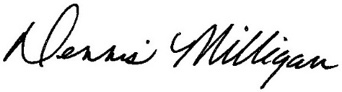 Dennis Milligan